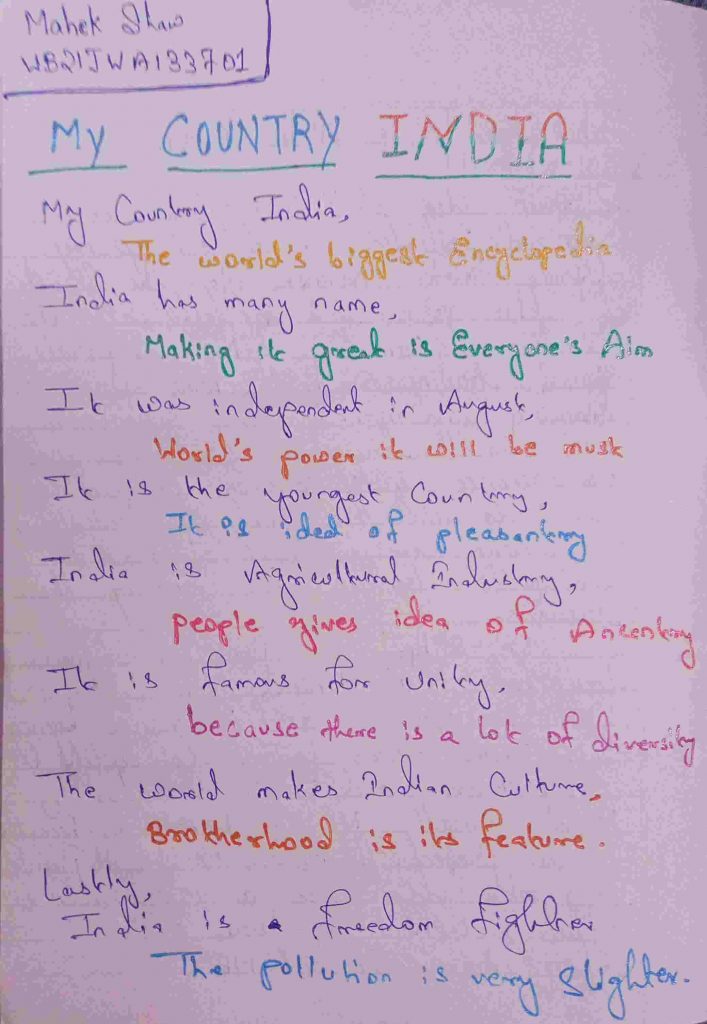 Mahek Shaw
WB21JWA133701
My COUNTRY INDIA
My Country India,
The world's biggest Encyclopedia
India has many name,
Making it great is Everyone's Aim
It was independent in August,
World's power it will be must
It is the youngest Country,
It is idea of pleasantry
India is Agricultural Industry,
people gives idea of Ancentry
It is famous for unity,
because there is a lot of diversity
The world makes Indian Culture,
Brotherhood is its feature.
Lastly,
India is a freedom fighter
The pollution is very slighter.